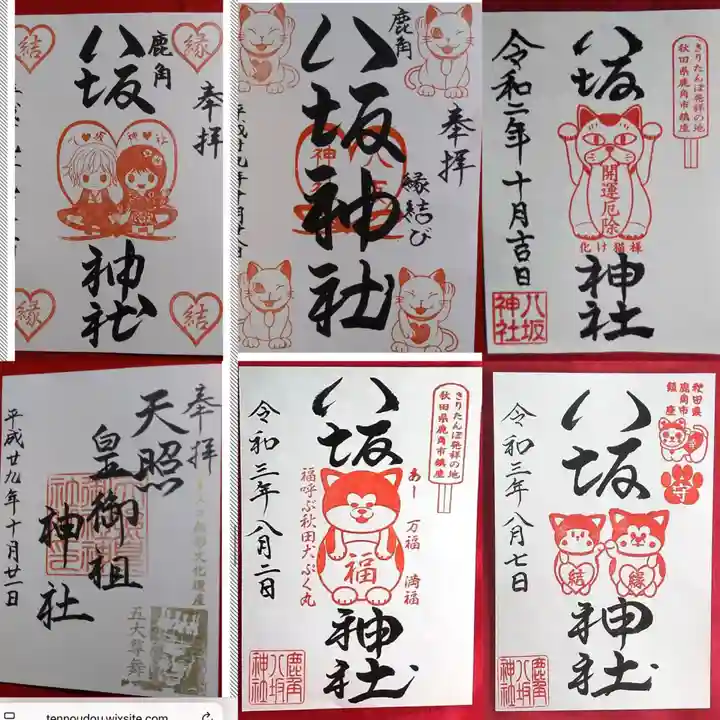 奉拝
鹿角
八坂
神社
縁
結
縁
結
奉拝
鹿角
八坂神社
縁結び
平成廿九年十月廿八日
きりたんぽ発祥の地
秋田県鹿角市鎮座
八坂
神社
開運厄除
化け猫様
令和二年十月吉日
八坂
神社
奉拝
天照
皇御祖
神社
五大尊舞
平成廿九年十月廿一日
きりたんぽ発祥の地
秋田県鹿角市鎮座
八坂
神社
あー
万福
満福
福
福呼ぶ秋田犬ぷく丸
令和三年八月二日
鹿角
八坂
神社
秋田県
鹿角市
鎮座
守
八坂
神社
結
縁
令和三年八月七日
鹿角
八坂
神社
tennoudou.wixsite.com